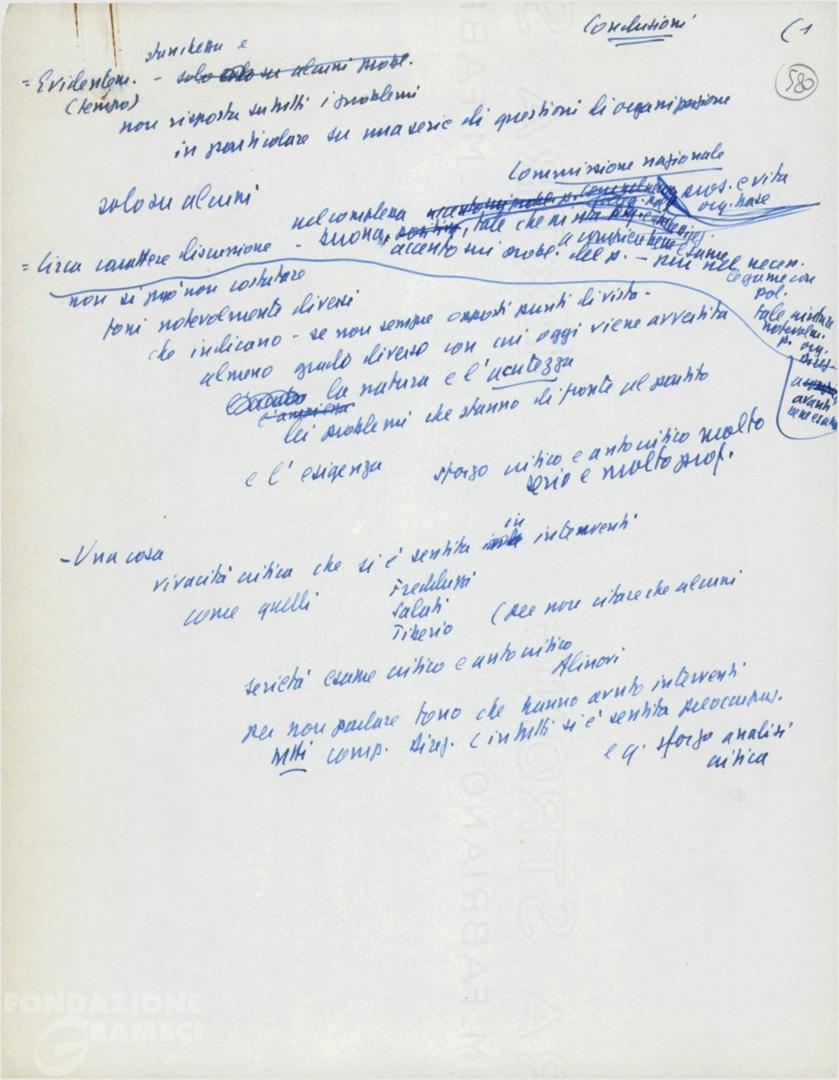 Conclusioni
(1
580
stanchezza e
= Evidentem. - solo su alcuni probl.
(tempo)
non risposta su tutti i problemi
in particolare su una serie di questioni di organizzazione
Commissione nazionale
solo su alcuni
pros. e vita
org. base
nel complesso
= Circa carattere discussione - buona, tale che
accento sui probl. del p. - più nel neces.
legame con
pol.
non si può non constatare
toni notevolmente diversi
che indicano - se non sempre opposti punti di vista -
almeno grado diverso con cui oggi viene avvertita
la natura e l'acutezza
dei problemi che stanno di fronte al partito
avanti
e l'esigenza sforzo critico e autocritico molto
serio e molto prof.
- Una cosa
vivacità critica che si è sentita in interventi
come quelli Freddussi
Salati
Tiberio (per non citare che alcuni
serietà esame critico e autocritico
Alinovi
per non parlare tono che hanno avuto interventi
tutti comp. Direz. (in tutti si è sentita preoccupaz.
e q. sforzo analisi
critica
FONDAZIONE
GRAMSCI